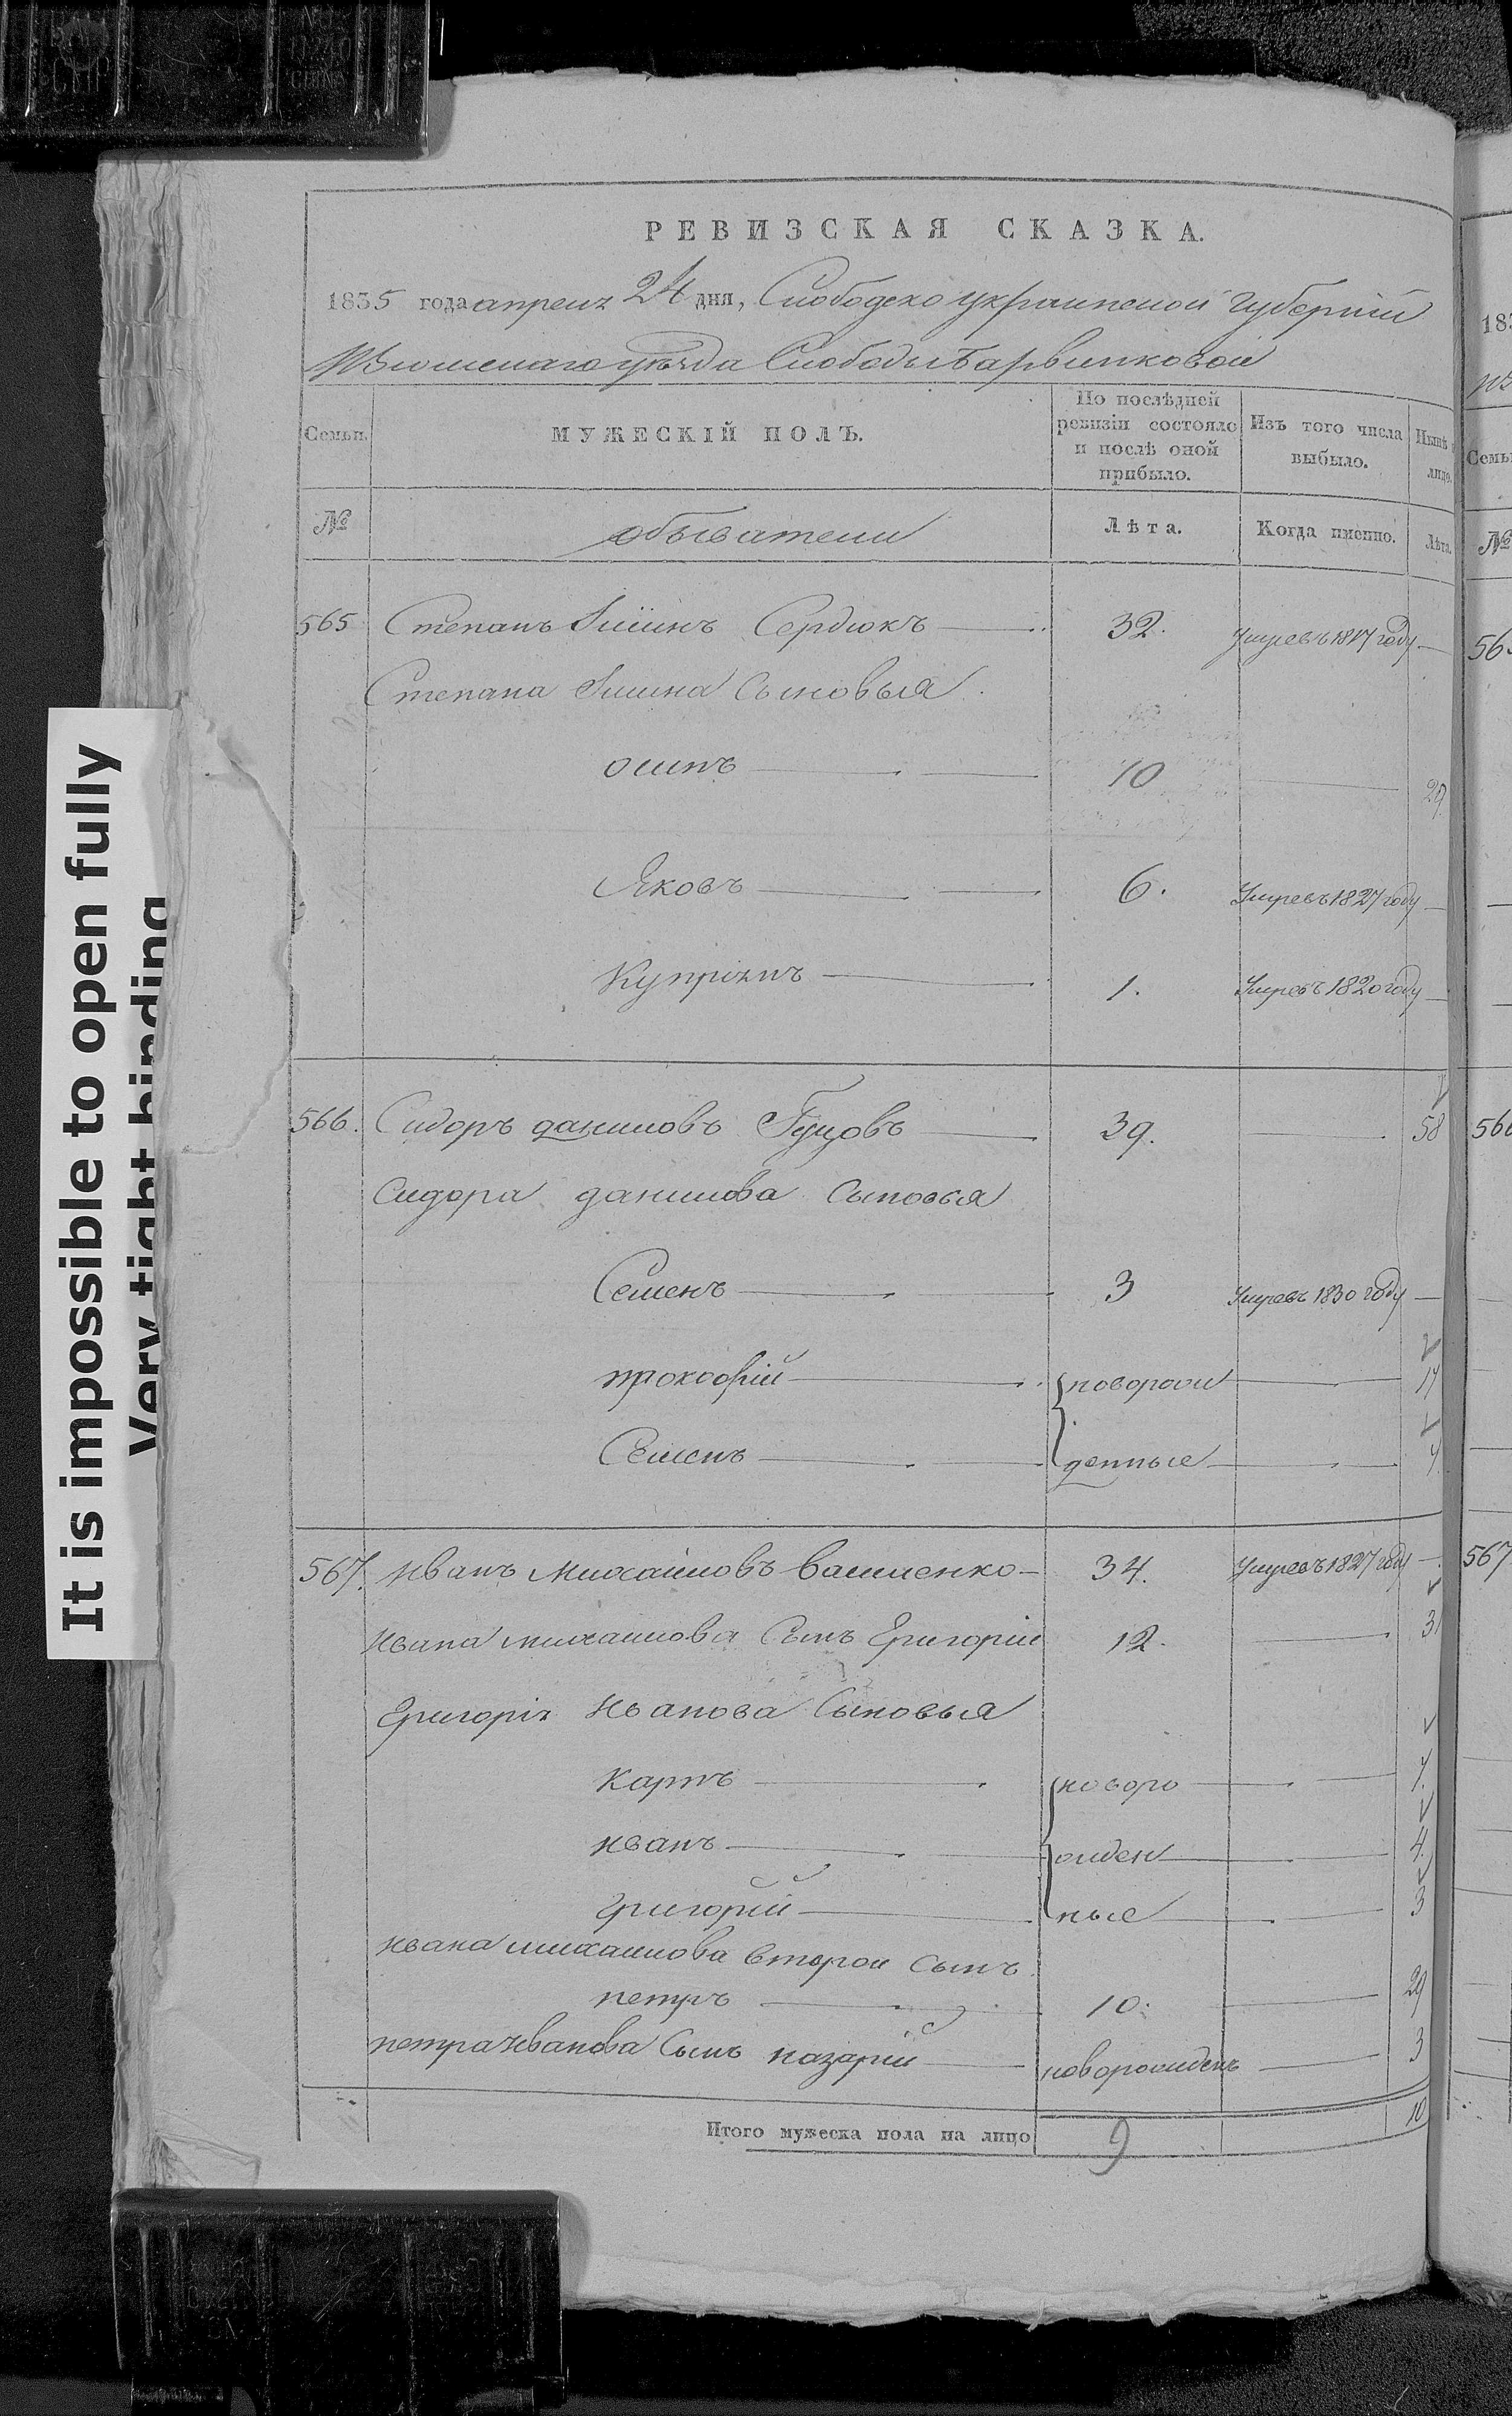 It is impossible to open fully
Very tight binding
РЕВИЗСКАЯ СКАЗКА.
1835 года апреля 24 дня, Слободско украинской губернии
Изюмскаго уѣзда Слободы Барвинковой
Семьи. МУЖЕСКІЙ ПОЛЪ. По послѣдней ревизіи состояло и послѣ оной прибыло. Изъ того числа выбыло. Нынѣ лицо.
№ обыватели Лѣта. Когда именно. Лѣта. №
565 Степанъ Сердюкъ 32. умре въ 1817 году
Степана сыновья
осипъ 10 29
Яковъ 6. умре въ 1827 году
Купріянъ 1. умре въ 1820 году
566. Сидоръ даниловъ 39. 58
Сидора данилова сыновья
Семенъ 3 умре въ 1830 году
прокофій новорож 17
Семенъ денные
567. иванъ михайловъ василенко 34. умре въ 1827 году 567
ивана михайлова сынъ Григорій 12. 31
Григорія иванова сыновья
Карпъ новоро 7.
иванъ жден 4.
григорій ные 3
ивана михайлова второй сынъ
петръ 10. 29
петра иванова сынъ назарій новорожденъ 3
10
Итого мужеска пола на лицо 9